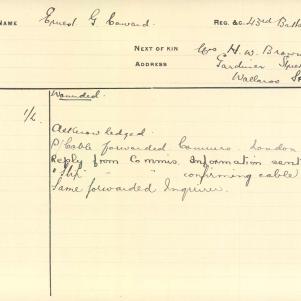 NAME Ernest G Coward REG. &C. 43rd Batt
NEXT OF KIN Mrs H. W. Brown
ADDRESS Gardiner Street
Wallaroo
Wounded.
Acknowledged.
Cable forwarded Commrs. London
Reply from Commis. Information sent
" Slip " " confirming cable
Same forwarded Inquirer.